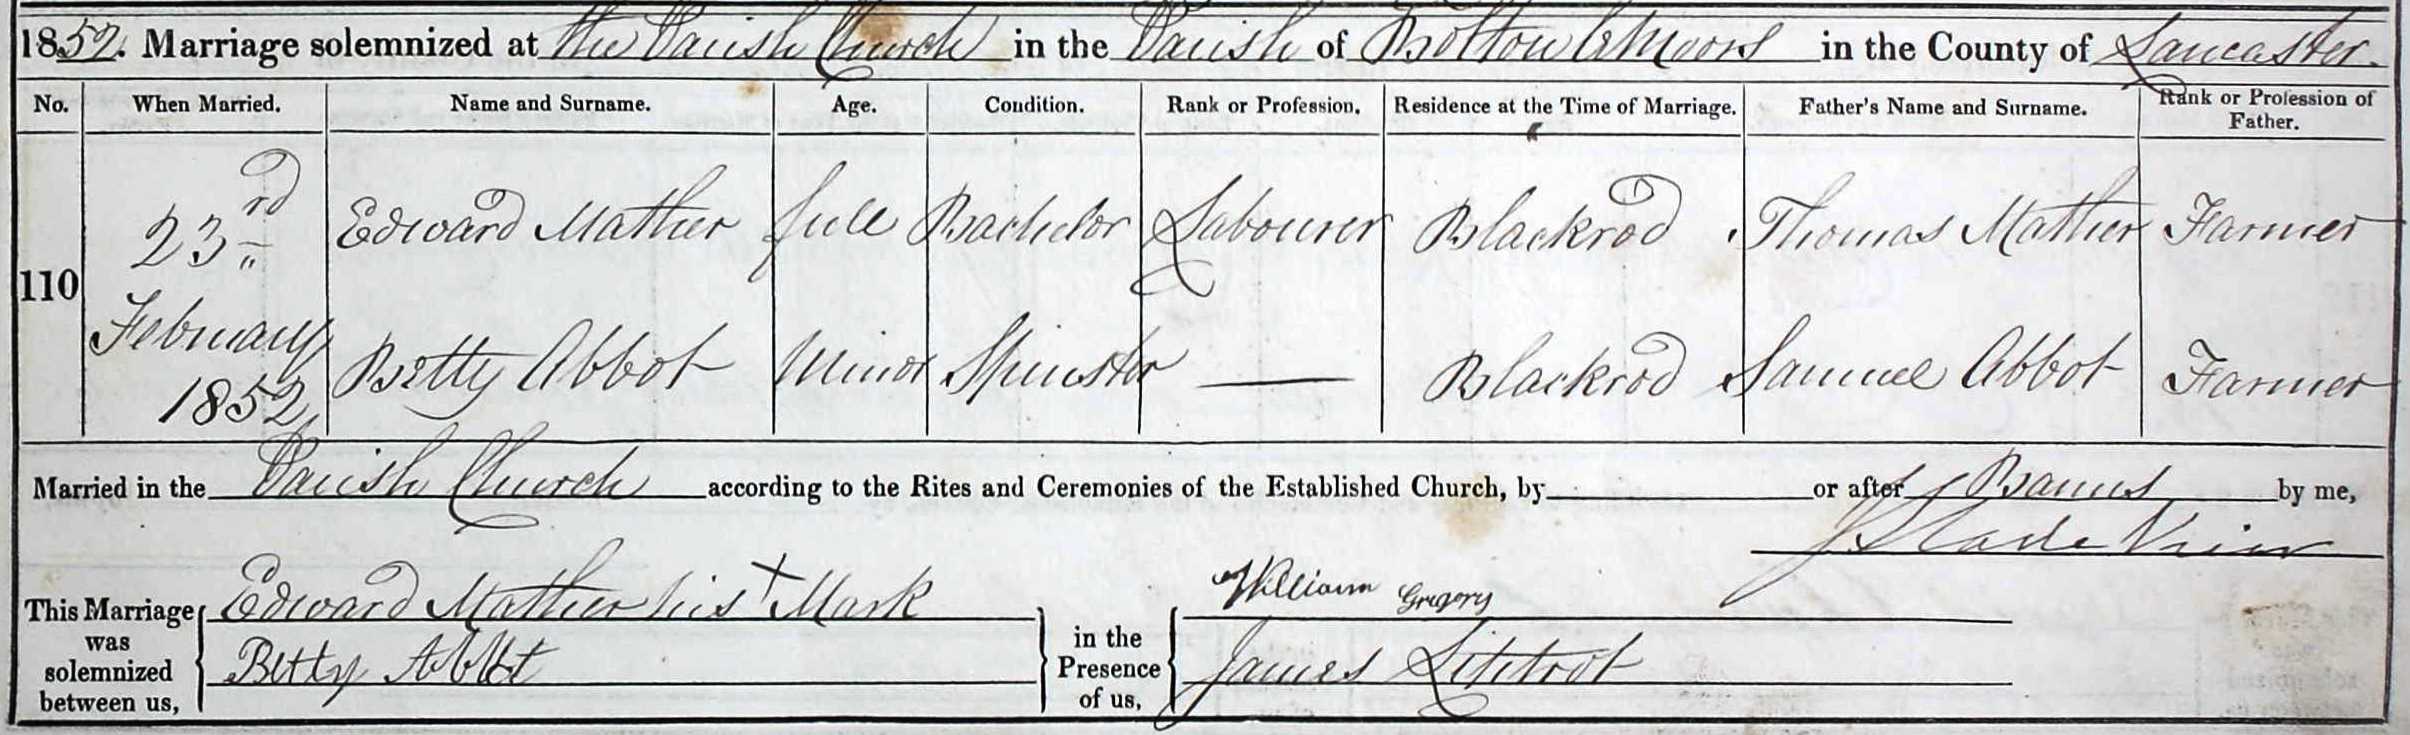 1852. Marriage solemnized at the Parish Church in the Parish of Bolton le Moors in the County of Lancaster.
No. When Married. Name and Surname. Age. Condition. Rank or Profession. Residence at the Time of Marriage. Father's Name and Surname. Rank or Profession of Father.
110 23rd February 1852 Edward Mather full Bachelor Labourer Blackrod Thomas Mather Farmer
Betty Abbot Minor Spinster — Blackrod Samuel Abbot Farmer
Married in the Parish Church according to the Rites and Ceremonies of the Established Church, by or after Banns by me,
J Slade Vicar
This Marriage was solemnized between us, Edward Mather his + Mark
Betty Abbot
in the Presence of us, William Gregory
James